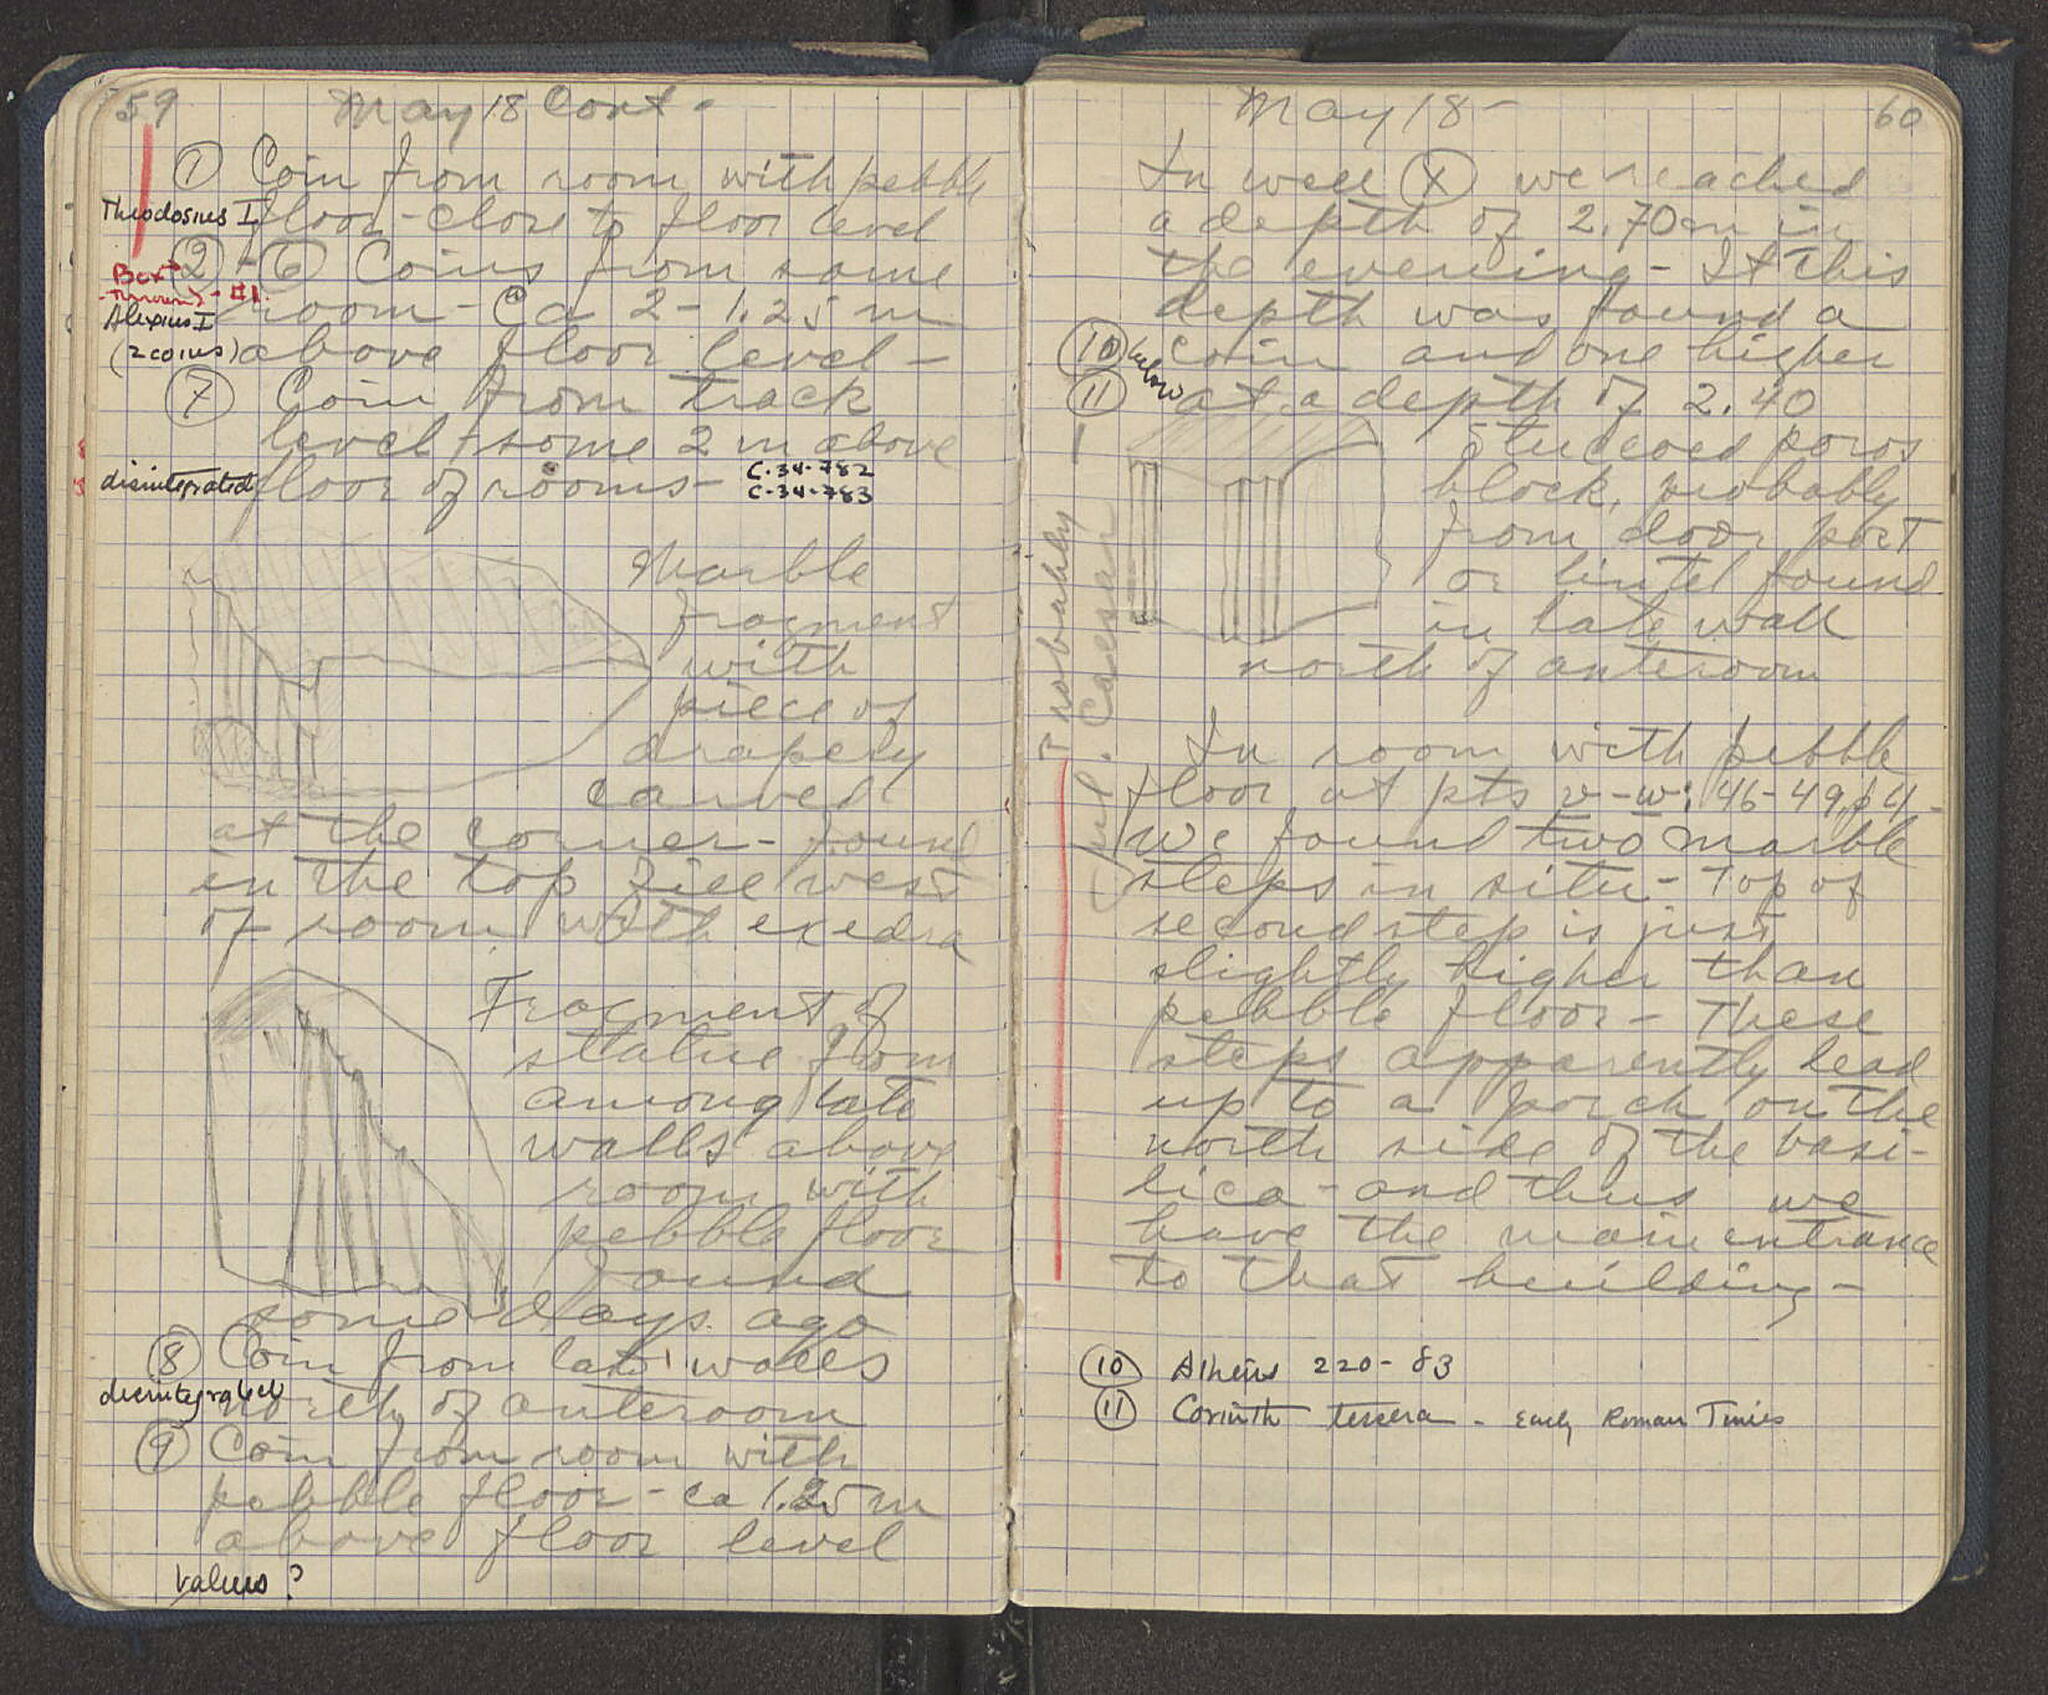 59
May 18 Cont -
① Coin from room with pebble
Theodosius I
floor - close to floor level
② - ⑥ Coins from same
Box
#1.
room - Ca 2 - 1.25 m
Alexius I
(2 coins)
above floor level -
⑦ Coin from track
level, some 2 m above
disintegrated
floor of rooms -
C-34-782
C-34-783
Marble
fragment
with
piece of
drapery
carved
at the corner - found
in the top fill west
of room with exedra
Fragment of
statue from
among late
walls above
room with
pebble floor
found
some days ago
⑧ Coin from late walls
disintegrated
north of anteroom
⑨ Coin from room with
pebble floor - ca 1.25 m
above floor level
Valens ?
May 18 -
60
In well Ⓧ we reached
a depth of 2.70 m in
the evening - At this
depth was found a
⑩ below
coin and one higher
⑪ at a depth of 2.40
Stuccoed poros
block, probably
from door post
or lintel found
in late wall
north of anteroom
Probably
Jul. Caesar
In room with pebble
floor at pts v-w: 46-49, p 4 -
we found two marble
steps in situ - Top of
second step is just
slightly higher than
pebble floor - These
steps apparently lead
up to a porch on the
north side of the basi-
lica - and thus we
have the main entrance
to that building -
⑩ Athens 220 - 83
⑪ Corinth tessera - Early Roman Times